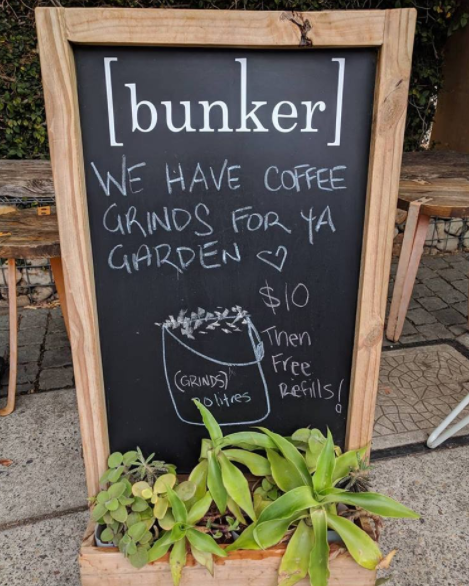 [bunker]
WE HAVE COFFEE
GRINDS FOR YA
GARDEN ♡
$10
Then
Free
Refills!
(GRINDS)
20 litres